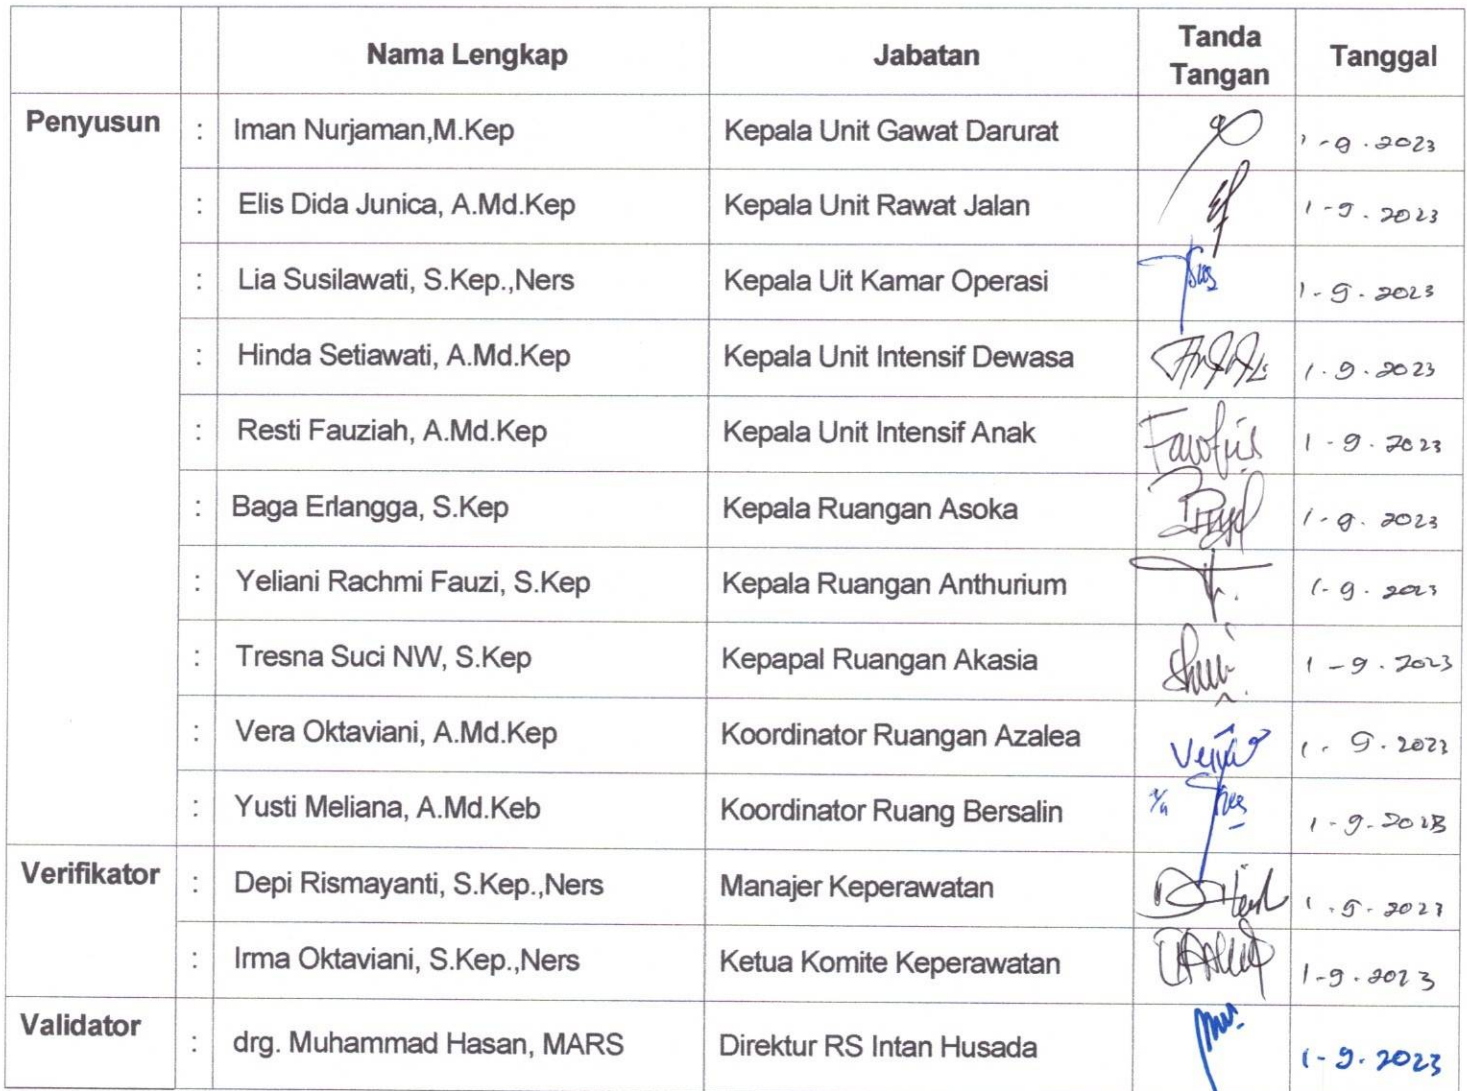 Nama Lengkap Jabatan Tanda Tangan Tanggal
Penyusun : Iman Nurjaman,M.Kep Kepala Unit Gawat Darurat 1-9.2023
: Elis Dida Junica, A.Md.Kep Kepala Unit Rawat Jalan 1-9.2023
: Lia Susilawati, S.Kep.,Ners Kepala Uit Kamar Operasi 1-9.2023
: Hinda Setiawati, A.Md.Kep Kepala Unit Intensif Dewasa 1.9.2023
: Resti Fauziah, A.Md.Kep Kepala Unit Intensif Anak 1-9.2023
: Baga Erlangga, S.Kep Kepala Ruangan Asoka 1-9.2023
: Yeliani Rachmi Fauzi, S.Kep Kepala Ruangan Anthurium 1-9.2023
: Tresna Suci NW, S.Kep Kepapal Ruangan Akasia 1-9.2023
: Vera Oktaviani, A.Md.Kep Koordinator Ruangan Azalea 1-9.2023
: Yusti Meliana, A.Md.Keb Koordinator Ruang Bersalin 1-9-2023
Verifikator : Depi Rismayanti, S.Kep.,Ners Manajer Keperawatan 1.9.2023
: Irma Oktaviani, S.Kep.,Ners Ketua Komite Keperawatan 1-9.2023
Validator : drg. Muhammad Hasan, MARS Direktur RS Intan Husada 1-9.2023